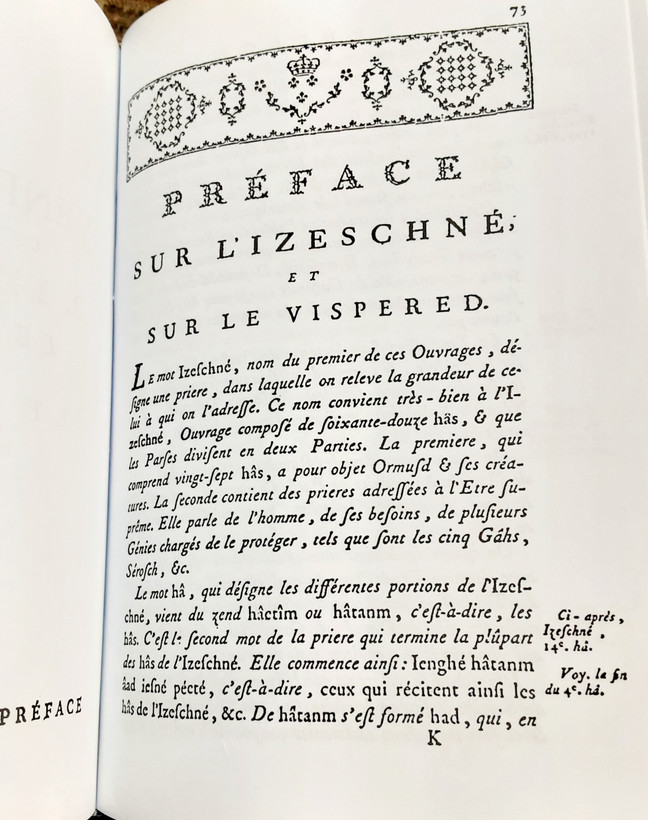 73
PRÉFACE
SUR L'IZESCHNÉ,
ET
SUR LE VISPERED.
LE mot Izeſchné, nom du premier de ces Ouvrages, dé-
ſigne une priere, dans laquelle on releve la grandeur de ce-
lui à qui on l'adreſſe. Ce nom convient très-bien à l'I-
zeſchné, Ouvrage compoſé de ſoixante-douze hâs, & que
les Parſes diviſent en deux Parties. La premiere, qui
comprend vingt-ſept hâs, a pour objet Ormuſd & ſes créa-
tures. La ſeconde contient des prieres adreſſées à l'Etre ſu-
prême. Elle parle de l'homme, de ſes beſoins, de pluſieurs
Génies chargés de le protéger, tels que ſont les cinq Gâhs,
Séroſch, &c.
Le mot hâ, qui déſigne les différentes portions de l'Izeſ-
chné, vient du zend hâctîm ou hâtanm, c'eſt-à-dire, les
hâs. C'eſt le ſecond mot de la priere qui termine la plûpart
des hâs de l'Izeſchné. Elle commence ainſi: Ienghé hâtanm
âad ieſné pécté, c'eſt-à-dire, ceux qui récitent ainſi les
hâs de l'Izeſchné, &c. De hâtanm s'eſt formé had, qui, en
K
Ci-après,
Izeſchné,
14e. hâ.
Voy. la fin
du 4e. hâ.
PRÉFACE